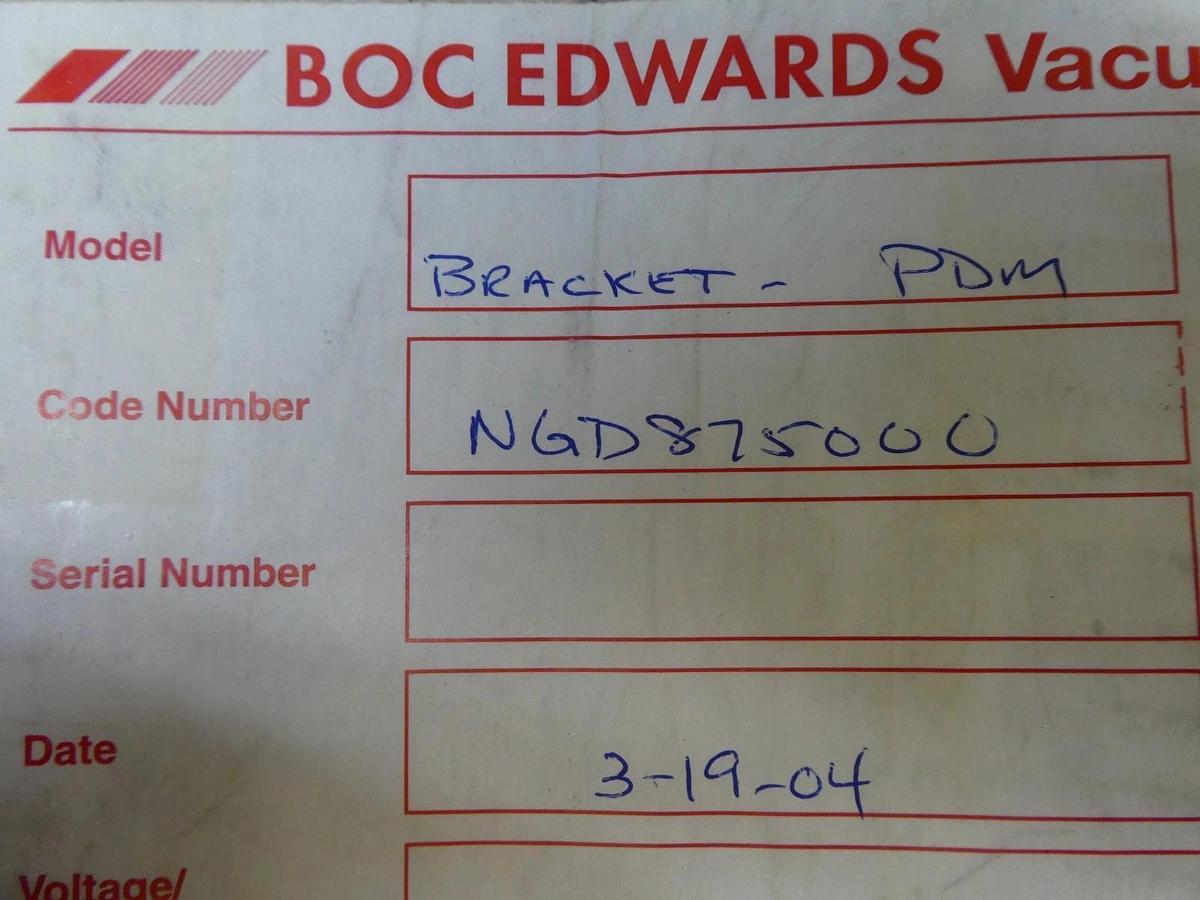 BOC EDWARDS Vacu
Model BRACKET - PDM
Code Number NGD875000
Serial Number
Date 3-19-04
Voltage/